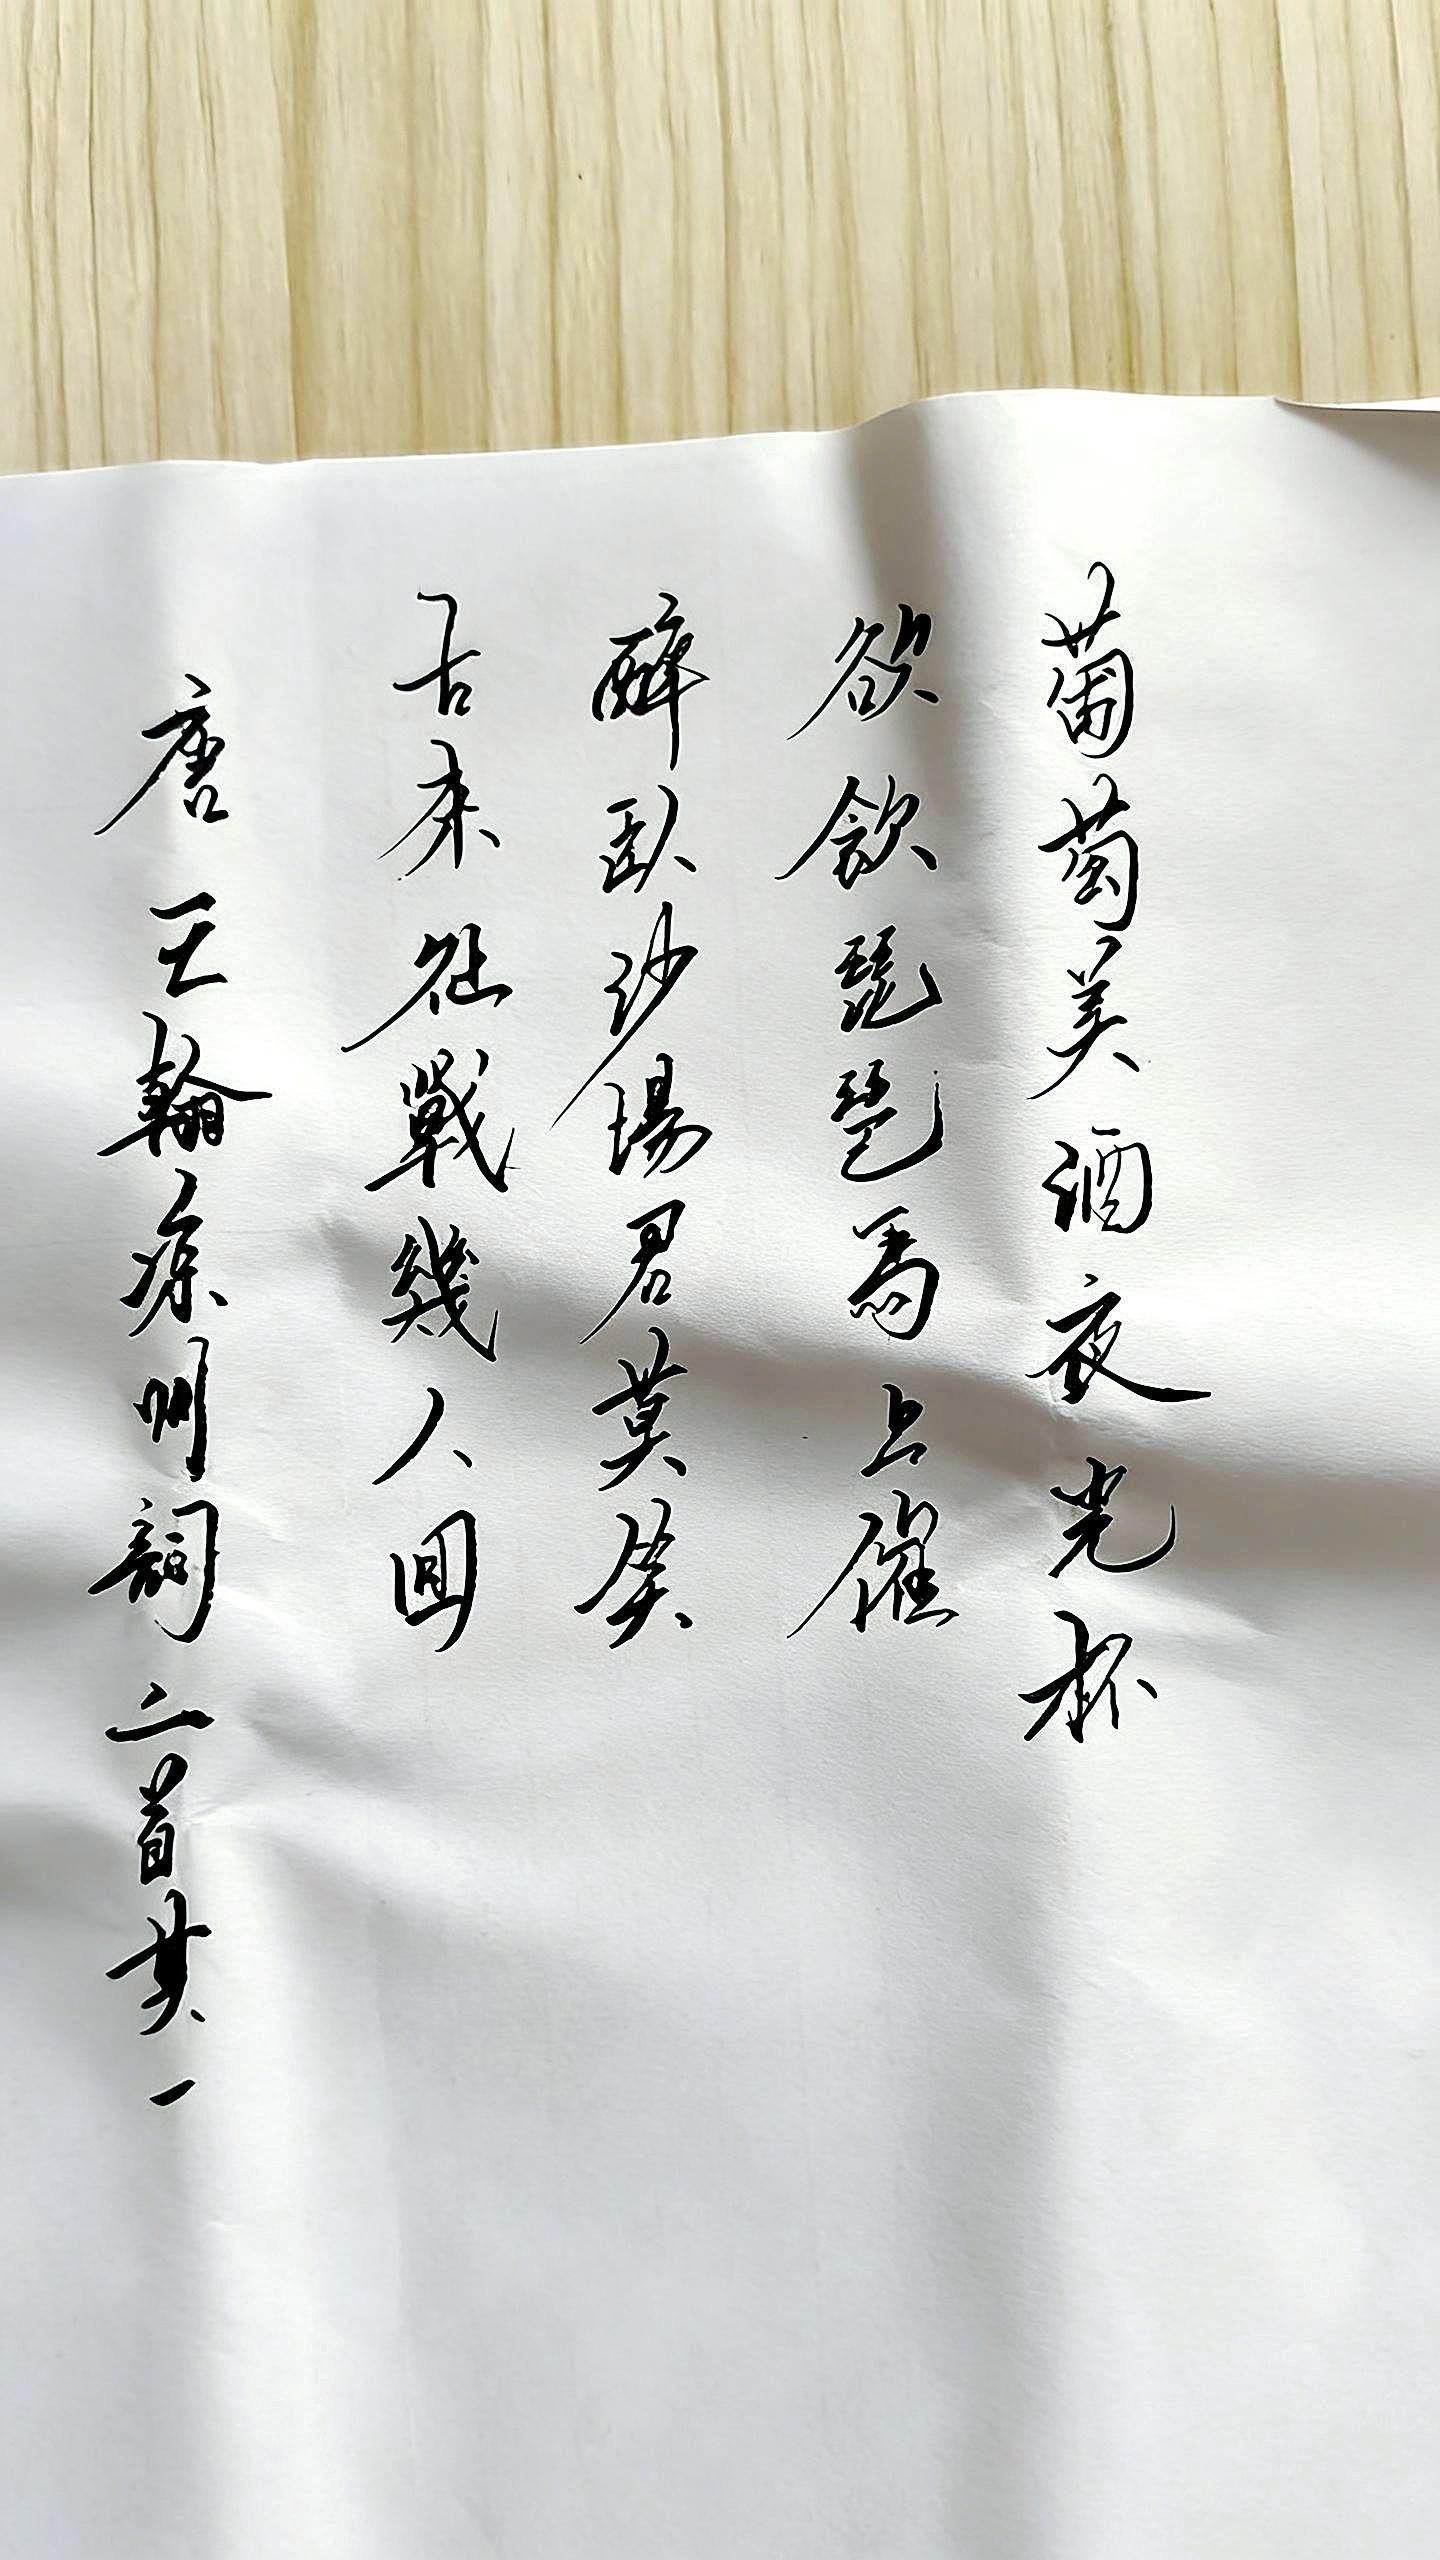 葡萄美酒夜光杯
欲飲琵琶馬上催
醉臥沙場君莫笑
古來征戰幾人回
唐王翰涼州詞二首其一